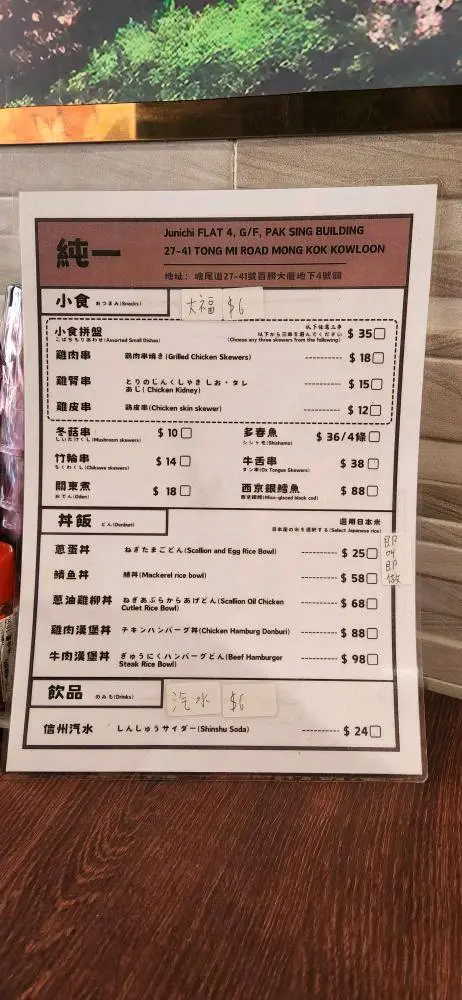 純一
Junichi FLAT 4, G/F, PAK SING BUILDING
27-41 TONG MI ROAD MONG KOK KOWLOON
地址：塘尾道27-41號百勝大廈地下4號舖
小食 おつまみ(Snacks)
大福 $6
小食拼盤 $ 35
こばちもりあわせ(Assorted Small Dishes)
以下任選三串
以下から三串を選んでください
(Choose any three skewers from the following)
雞肉串 鶏肉串焼き(Grilled Chicken Skewers) $ 18
雞腎串 とりのじんくしやき しお・タレ あじ(Chicken Kidney) $ 15
雞皮串 鶏皮串(Chicken skin skewer) $ 12
冬菇串 $ 10
しいたけくし(Mushroom skewers)
多春魚 $ 36/4條
シシャモ(Shishamo)
竹輪串 $ 14
ちくわくし(Chikuwa skewers)
牛舌串 $ 38
タン串(Ox Tongue Skewers)
關東煮 $ 18
おでん(Oden)
西京銀鱈魚 $ 88
西京銀鱈(Miso-glazed black cod)
丼飯 どん(Donburi)
選用日本米
日本産の米を選択する(Select Japanese rice)
蔥蛋丼 ねぎたまごどん(Scallion and Egg Rice Bowl) $ 25
即叫即做
鯖魚丼 鯖丼(Mackerel rice bowl) $ 58
蔥油雞柳丼 ねぎあぶらからあげどん(Scallion Oil Chicken
Cutlet Rice Bowl) $ 68
雞肉漢堡丼 チキンハンバーグ丼(Chicken Hamburg Donburi) $ 88
牛肉漢堡丼 ぎゅうにくハンバーグどん(Beef Hamburger
Steak Rice Bowl) $ 98
飲品 のみも(Drinks)
汽水 $6
信州汽水 しんしゅうサイダー(Shinshu Soda) $ 24